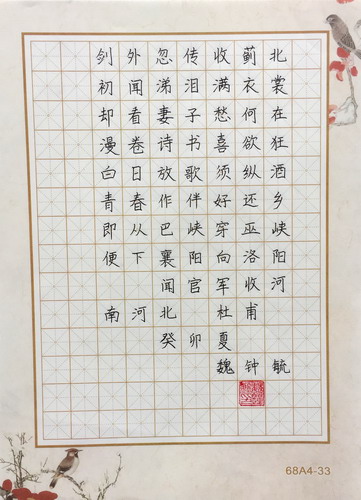 剑外忽传收蓟北
初闻涕泪满衣裳
却看妻子愁何在
漫卷诗书喜欲狂
白日放歌须纵酒
青春作伴好还乡
即从巴峡穿巫峡
便下襄阳向洛阳
闻官军收河
南河北 杜甫
癸卯夏
魏钟毓
68A4-33